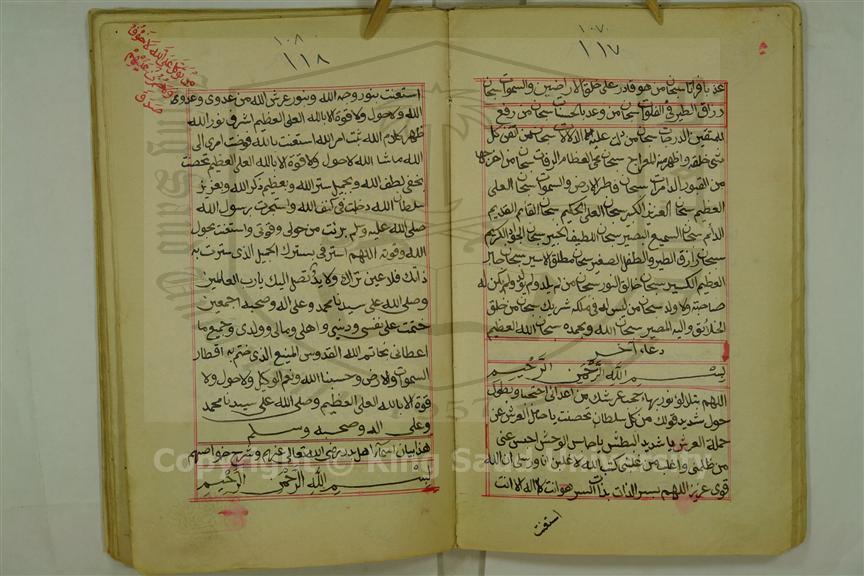 ١٠٧
١١٧
عذبا فراتا سبحان من هو قادر على خلق الارضين والسموات سبحان
رزاق الطير في الفلوات سبحان من وعد بالحسنات سبحان من رفع
للمتقين الدرجات سبحان من دلت عليه الدلالات سبحان من اتقن كل
شئ خلقه واظهره للمراح سبحان محي العظام الرفات سبحان من اخرجها
من القبور الدامرات سبحان فاطر الارض والسموات سبحان العلى
العظيم سبحان العزيز الكبير سبحان العلى الحكيم سبحان القائم القديم
الدائم سبحان السميع البصير سبحان اللطيف الخبير سبحان الكريم
سبحان رازق الطير والطفل الصغير سبحان مطلق الاسير سبحان جابر
العظم الكسير سبحان خالق النور سبحان من لم يلد ولم يولد ولم يكن له
صاحبة ولا ولد سبحان من ليس له في ملكه شريك سبحان من خلق
الخلائق واليه المصير سبحان الله وبحمده سبحان الله العظيم
دعاء آخر
بسم الله الرحمن الرحيم
اللهم بتلألؤ نور بهاء حجب عرشك من اعدائي احتجبت وبطول
حول شديد قوتك من كل سلطان تحصنت يا حامل العرش عن
حملة العرش يا شديد البطش يا حابس الوحش احبس عني
من ظلمني واغلب من غلبني كتب الله لاغلبن انا ورسلي ان الله
قوي عزيز اللهم بسر الذات بذات السر هو انت لا اله الا انت
استعنت
١٠٨
١١٨
من توكل على الله لا خوف
استعنت بنور وجه الله وبنور عرش الله من عدوي وعدو
الله ولا حول ولا قوة الا بالله العلى العظيم اشرق نور الله
ظهر كلام الله ثبت امر الله استعنت بالله فوضت امري الى
الله ما شا الله لا حول ولا قوة الا بالله العلى العظيم تحصنت
بخفي لطف الله وبجميل ستر الله وبعظيم ذكر الله وبعزيز
سلطان الله دخلت في كنف الله واستجرت برسول الله
صلى الله عليه وسلم برئت من حولي وقوتي واستعنت بحول
الله وقوته اللهم استرني بسترك الجميل الذي سترت به
ذاتك فلا عين تراك ولا يد تصل اليك يا رب العالمين
وصلى الله على سيدنا محمد وعلى اله وصحبه اجمعين
ختمت على نفسي وديني واهلي ومالي وولدي وجميع ما
اعطاني بخاتم الله القدوس المنيع الذي ختم به اقطار
السموات والارض وحسبنا الله ونعم الوكيل ولا حول ولا
قوة الا بالله العلى العظيم وصلى الله على سيدنا محمد
وعلى اله وصحبه وسلم
هذا بيان اسماء اهل بدر رضي الله تعالى عنهم وشرح خواصهم
بسم الله الرحمن الرحيم
Copyright © King Saud University
1957